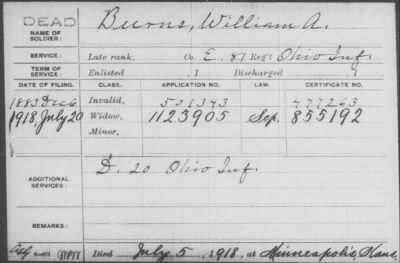 DEAD
NAME OF SOLDIER: Burns, William A.
SERVICE: Late rank, Co. E, 81 Reg't Ohio Inf.
TERM OF SERVICE: Enlisted , 1 Discharged , 1
DATE OF FILING. CLASS. APPLICATION NO. LAW. CERTIFICATE NO.
1883 Dec 6 Invalid, 501343 477263
1918 July 20 Widow, 1123905 Sep. 855192
Minor,
ADDITIONAL SERVICES: D. 20 Ohio Inf.
REMARKS:
Died July 5, 1918, at Minneapolis, Kans.